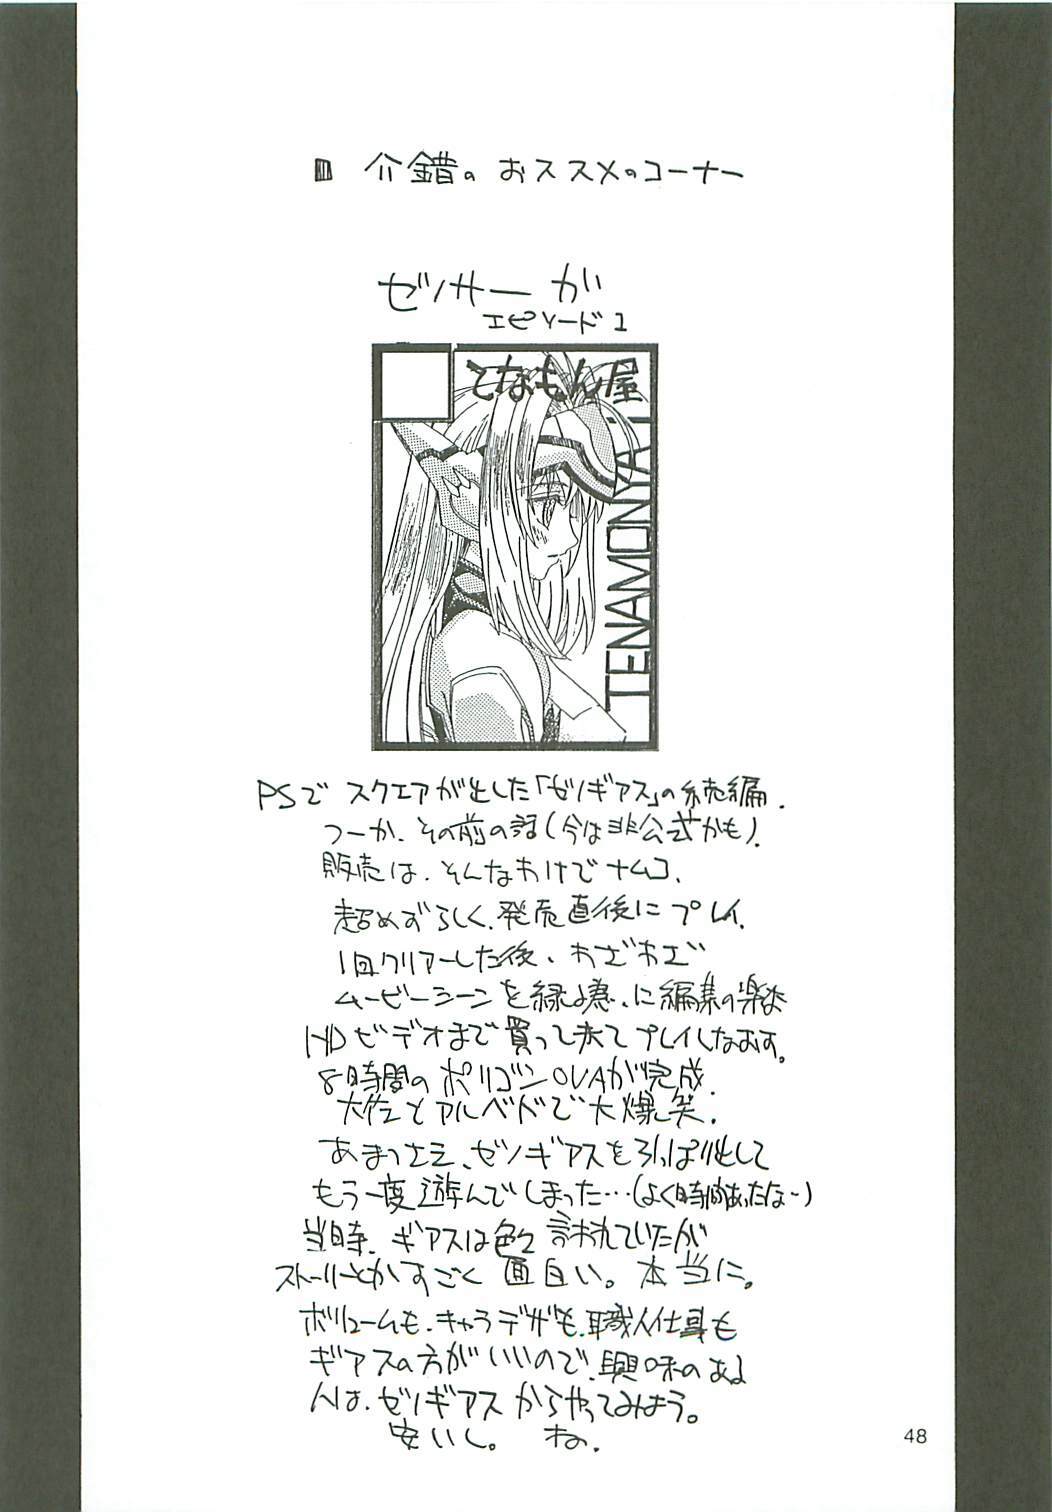 介錯の おススメのコーナー
ゼノサーガ
エピソード1
てなもん屋
TENAMONYA
PSで スクエアが出した「ゼノギアス」の続編.
つーか、その前の話(今は非公式かも).
販売は、そんなわけでナムコ.
超めずらしく、発売直後にプレイ.
1回クリアーした後、わざわざ
ムービーシーンを に編集の楽な
HDビデオまで買って来てプレイしなおす。
8時間のポリゴンOVAが完成.
大佐とアルベドで大爆笑.
あまつさえ、ゼノギアスを引っぱり出して
もう一度遊んでしまった…(よく時間あったな〜)
当時、ギアスは色々言われていたが
ストーリーとかすごく面白い。本当に。
ボリュームも、キャラデザも、職人仕事も
ギアスの方がいいので、興味のある
人は、ゼノギアスからやってみよう。
安いし。 ね.
48